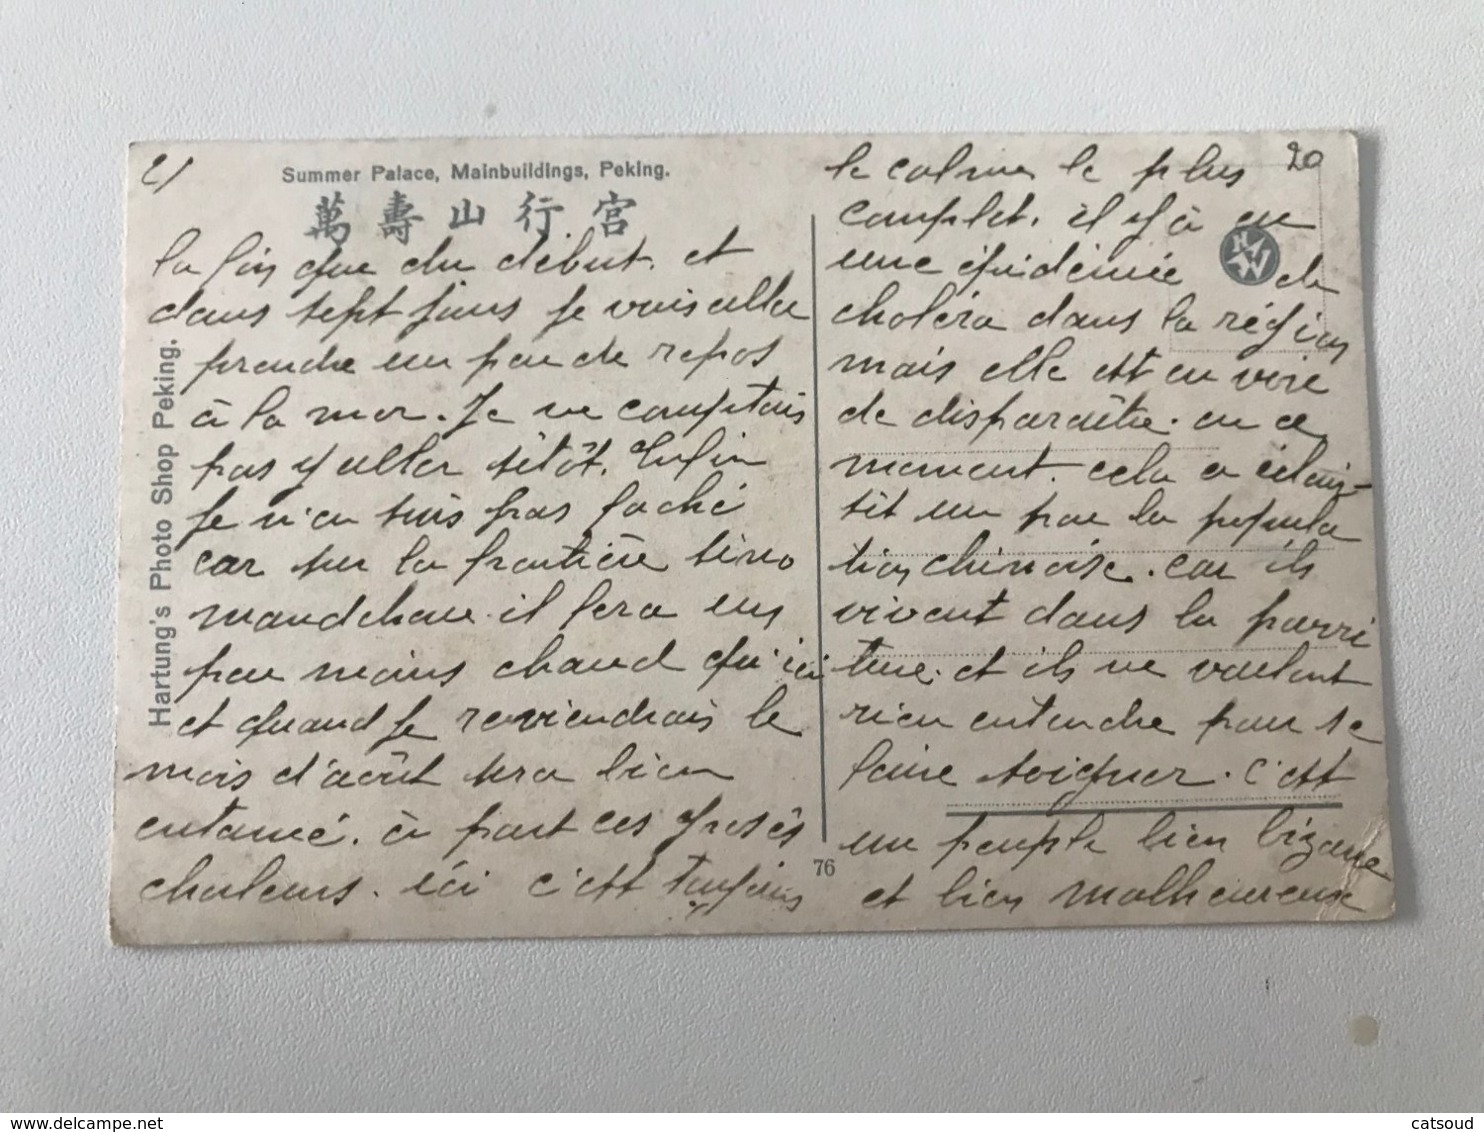 21
Summer Palace, Mainbuildings, Peking.
萬壽山行宮
Hartung's Photo Shop Peking.
la fin que du début. et
dans sept jours je vais aller
prendre un peu de repos
à la mer. Je ne comptais
pas y aller sitôt. Enfin
je n'en suis pas faché
car sur la frontière sino
mandchoue il fera un
peu moins chaud qu'ici
et quand je reviendrais le
mois d'août sera bien
entamé. à part ces grosses
chaleurs. ici c'est toujours
76
20
le calme le plus
complet. il y à eu
une épidémie de
choléra dans la région
mais elle est en voie
de disparaître. en ce
moment. cela a
un peu la popula
tion chinoise. car ils
vivent dans la pourri
ture. et ils ne veulent
rien entendre pour se
faire soigner. c'est
un peuple bien bizarre
et bien malheureuse
HWW
catsoud